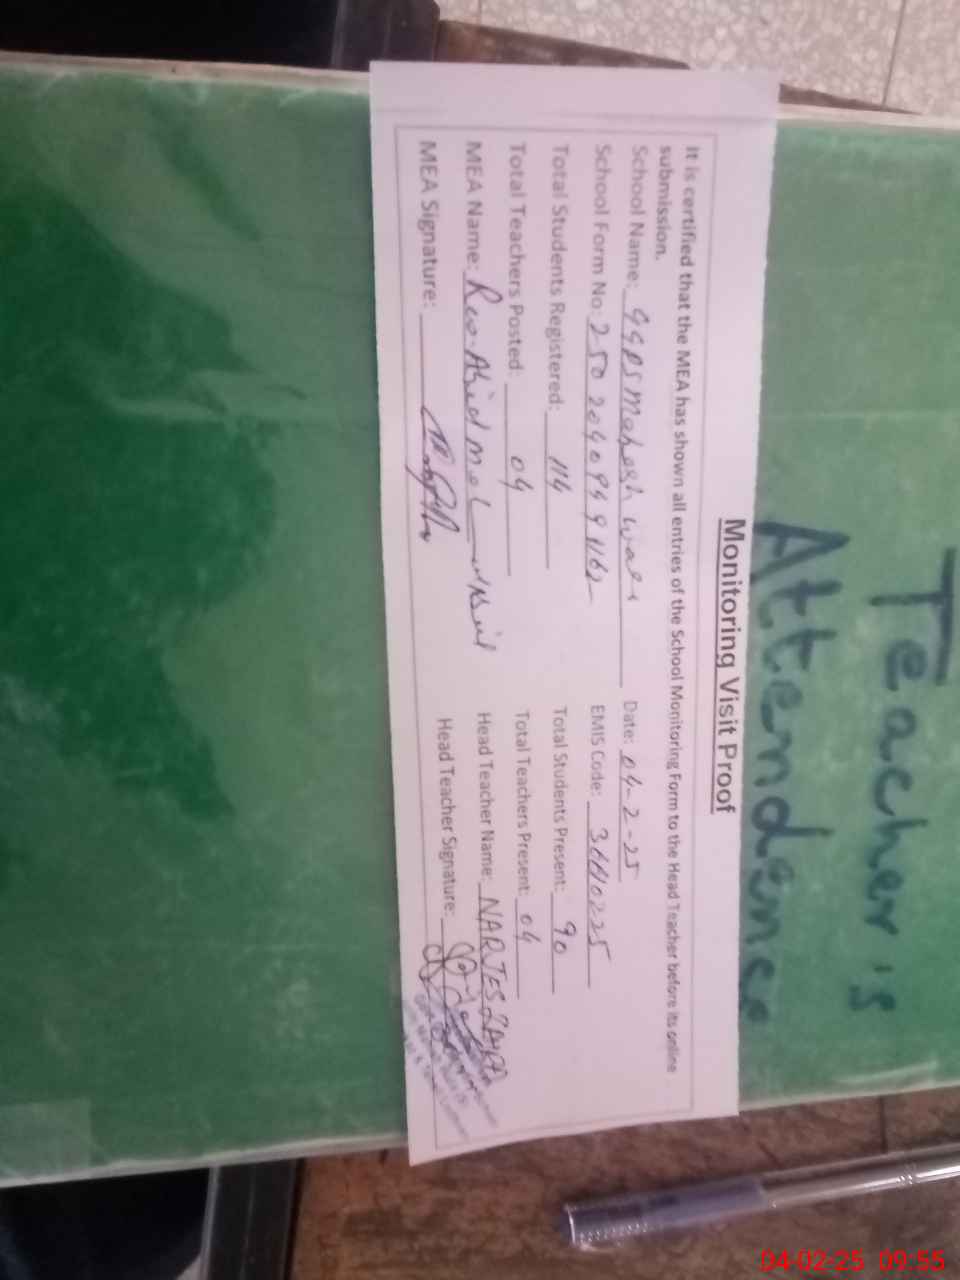 Teacher's
Attendence
Monitoring Visit Proof
It is certified that the MEA has shown all entries of the School Monitoring Form to the Head Teacher before its online
submission.
School Name: GGPS Mahesh Date: 04-2-25
School Form No: EMIS Code:
Total Students Registered: 114 Total Students Present: 90
Total Teachers Posted: 04 Total Teachers Present: 04
MEA Name: Head Teacher Name: NARJES
MEA Signature: Head Teacher Signature:
04-02-25 09:55